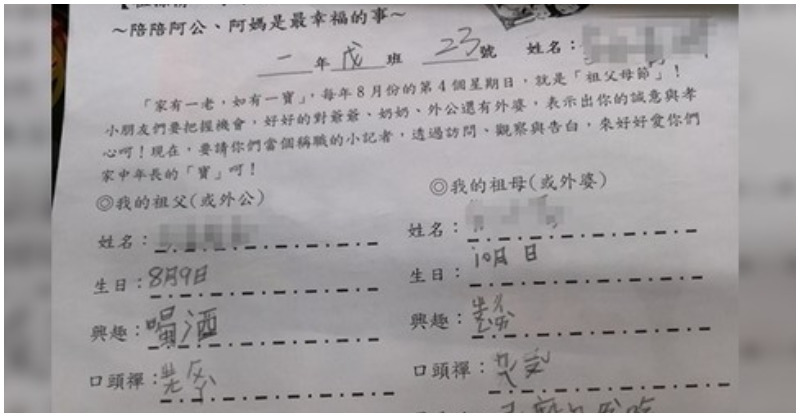 ～陪陪阿公、阿媽是最幸福的事～
二年戊班 23號 姓名：
「家有一老，如有一寶」，每年8月份的第4個星期日，就是「祖父母節」！
小朋友們要把握機會，好好的對爺爺、奶奶、外公還有外婆，表示出你的誠意與孝
心呵！現在，要請你們當個稱職的小記者，透過訪問、觀察與告白，來好好愛你們
家中年長的「寶」呵！
◎我的祖父(或外公) ◎我的祖母(或外婆)
姓名： 姓名：
生日：8月9日 生日：10月 日
興趣：喝酒 興趣：
口頭禪： 口頭禪：